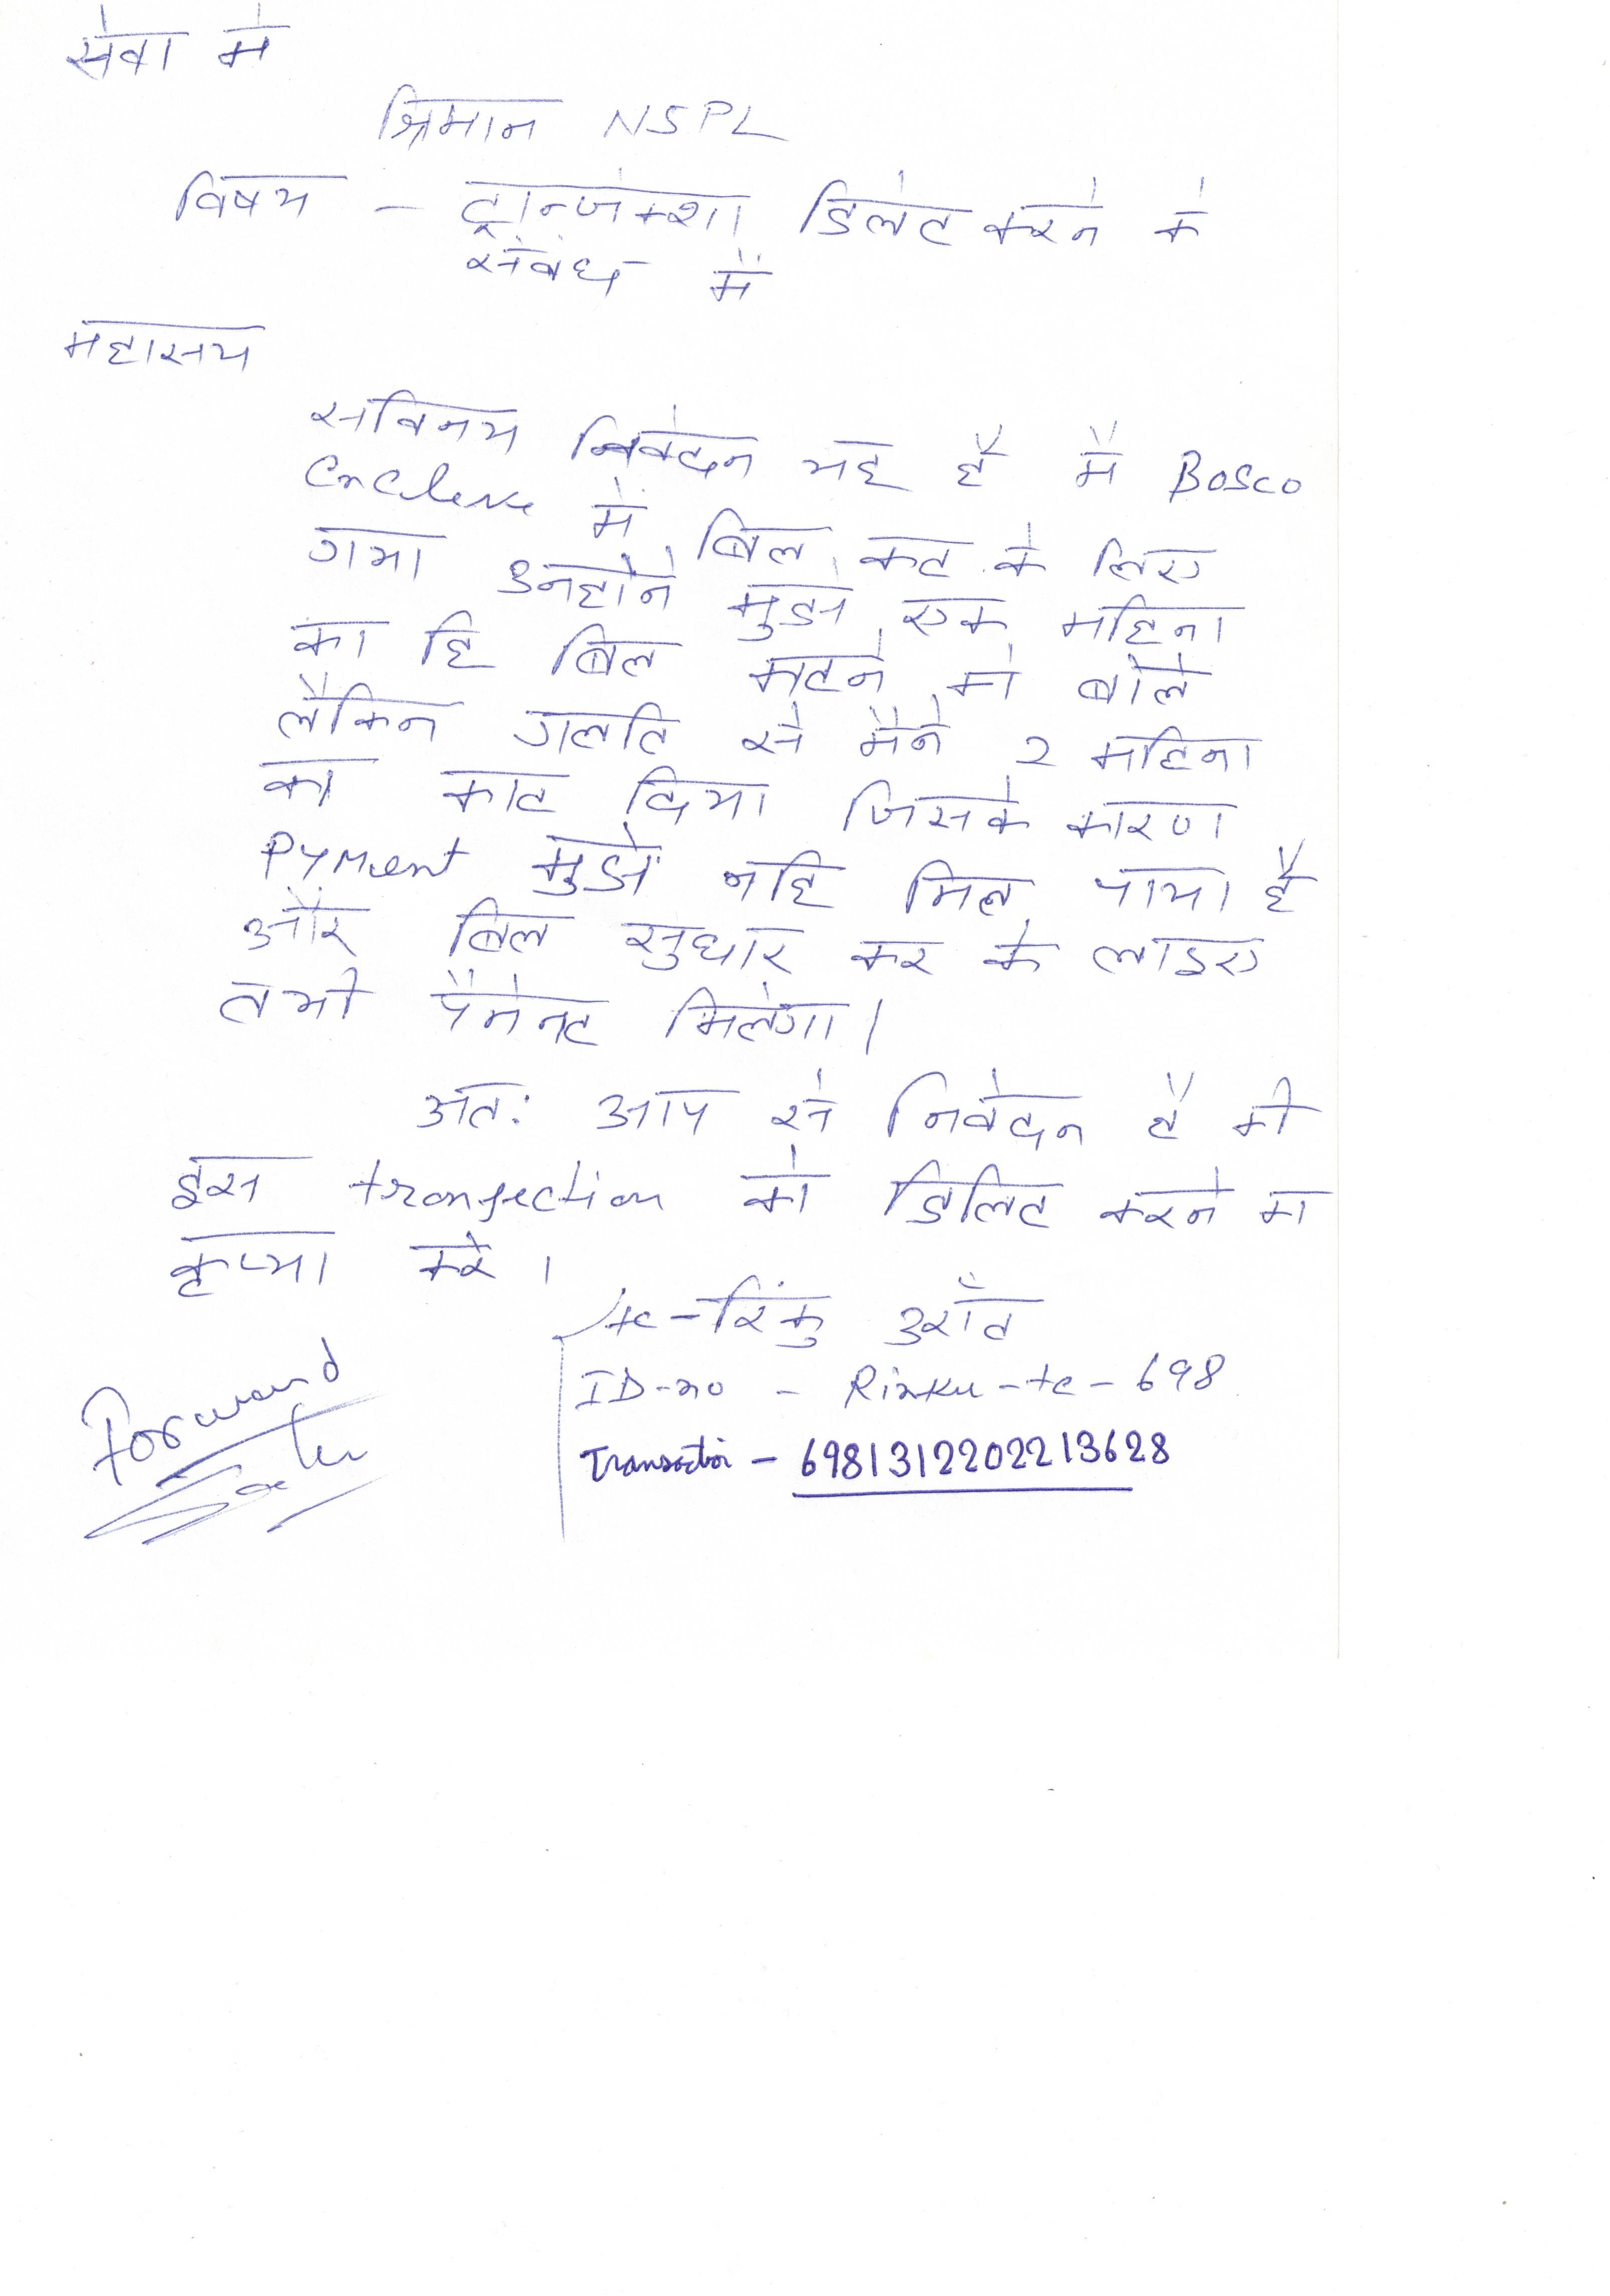 सेवा मे
श्रिमान NSPL
विषय - ट्रान्जेक्शा डिलेट करने के
संबंध में
महासय
सविनय निवेदन यह है मै Bosco
Enclave में बिल कट के लिए
गया उनहोने मुझे एक महिना
का हि बिल काटने को बोले
लैकिन गलति से मैने 2 महिना
का काट दिया जिसके कारण
Pyment मुझे नहि मिल पाया है
और बिल सुधार कर के लाइए
तभी पैमेनट मिलेगा।
अतः आप से निवेदन है की
इस transection को डिलिट करने का
कृप्या करे।
tc-रिंकु उराँव
ID-no - Rinku-tc-698
Transaction - 6981312202213628
Forward